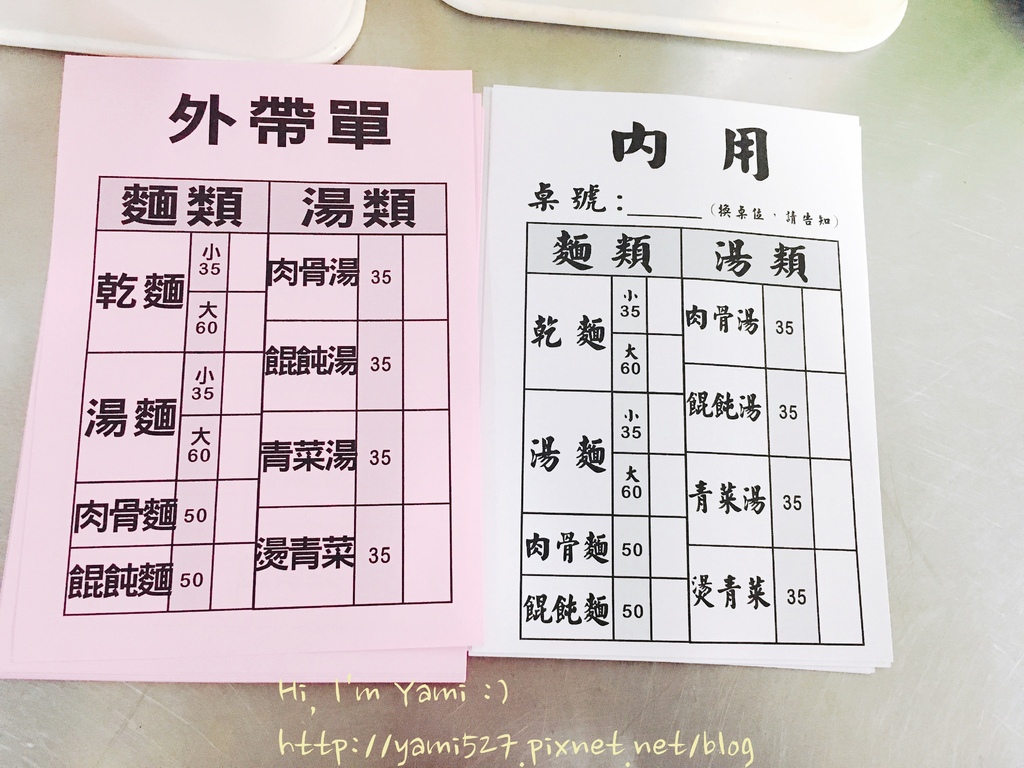 外帶單
麵類 湯類
乾麵 小 35 肉骨湯 35
大 60 餛飩湯 35
湯麵 小 35 青菜湯 35
大 60
肉骨麵 50 燙青菜 35
餛飩麵 50
內用
桌號：______（換桌位，請告知）
麵類 湯類
乾麵 小 35 肉骨湯 35
大 60 餛飩湯 35
湯麵 小 35 青菜湯 35
大 60
肉骨麵 50 燙青菜 35
餛飩麵 50
Hi, I'm Yami :)
http://yami527.pixnet.net/blog